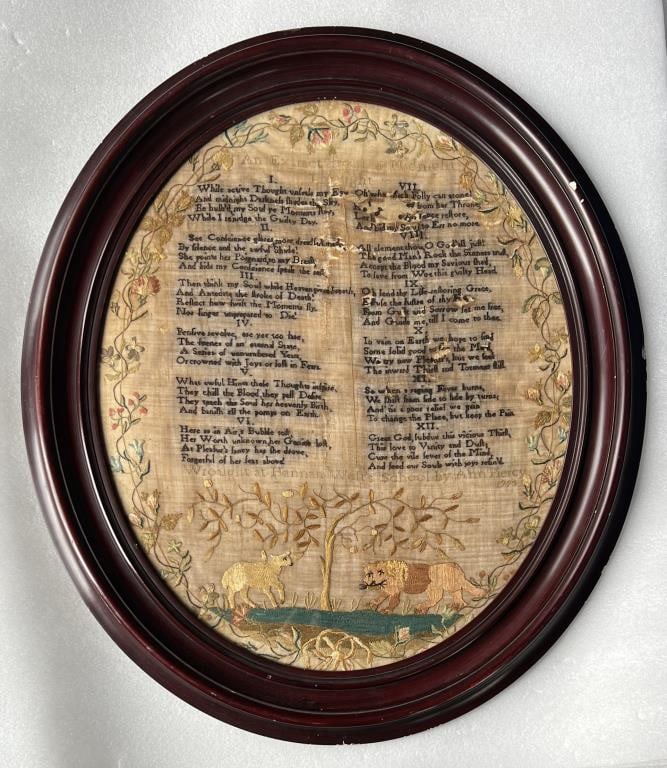 An Extract
I.
While active Thought unseals my Eye
And midnight Darkness shrides the Sky,
Ye hallow'd, my Soul ye Moments
While I the Guilty Day.
II
See Conscience glares more dreadful
By silence and the awful Shade;
She points her Poignard to my Breast
And bids my Conscience speak the rest
III
Then think my Soul while Heaven
And Antedate the stroke of Death;
Reflect how swift the Moments fly,
Nor linger unprepared to Die.
IV.
Pensive revolve, ere yet too late,
The scenes of an eternal State,
A Series of unnumbered Years,
Or crowned with Joys or lost in Fears.
V.
What awful Hints these Thoughts inspire,
They chill the Blood, they pall Desire
They teach the Soul her heavenly Birth,
And banish all the pomps on Earth.
VI.
Here as in Air, a Bubble tost,
Her Worth unknown, her Genius lost,
At Pleasure's fancy has she drove,
Forgetful of her Seat above
VII.
Oh! Folly can atone!
from her Throne,
restore,
And bid my Soul to Err no more.
VIII
All clement thou, O God, all just!
The good Man's Rock the Sinners trust,
Accept the Blood my Saviour shed,
To save from Woe this guilty Head.
IX.
O! lend thy Life-restoring Grace,
the lustre of thy
From Guilt and Sorrow set me free,
And Guide me, till I come to thee.
X.
In vain on Earth we hope to find
Some solid good for the Mind
We try new Pleasures, but we feel
The inward Thirst and Torment still.
XI.
So when a raging Fever burns,
We shift from side to side by turns;
And 'tis a poor relief we gain
To change the Place, but keep the Pain.
XII.
Great God, subdue this vicious Thirst,
This love to Vanity and Dust;
Cure the vile fever of the Mind,
And feed our Souls with joys refin'd.
Hannah by Ann